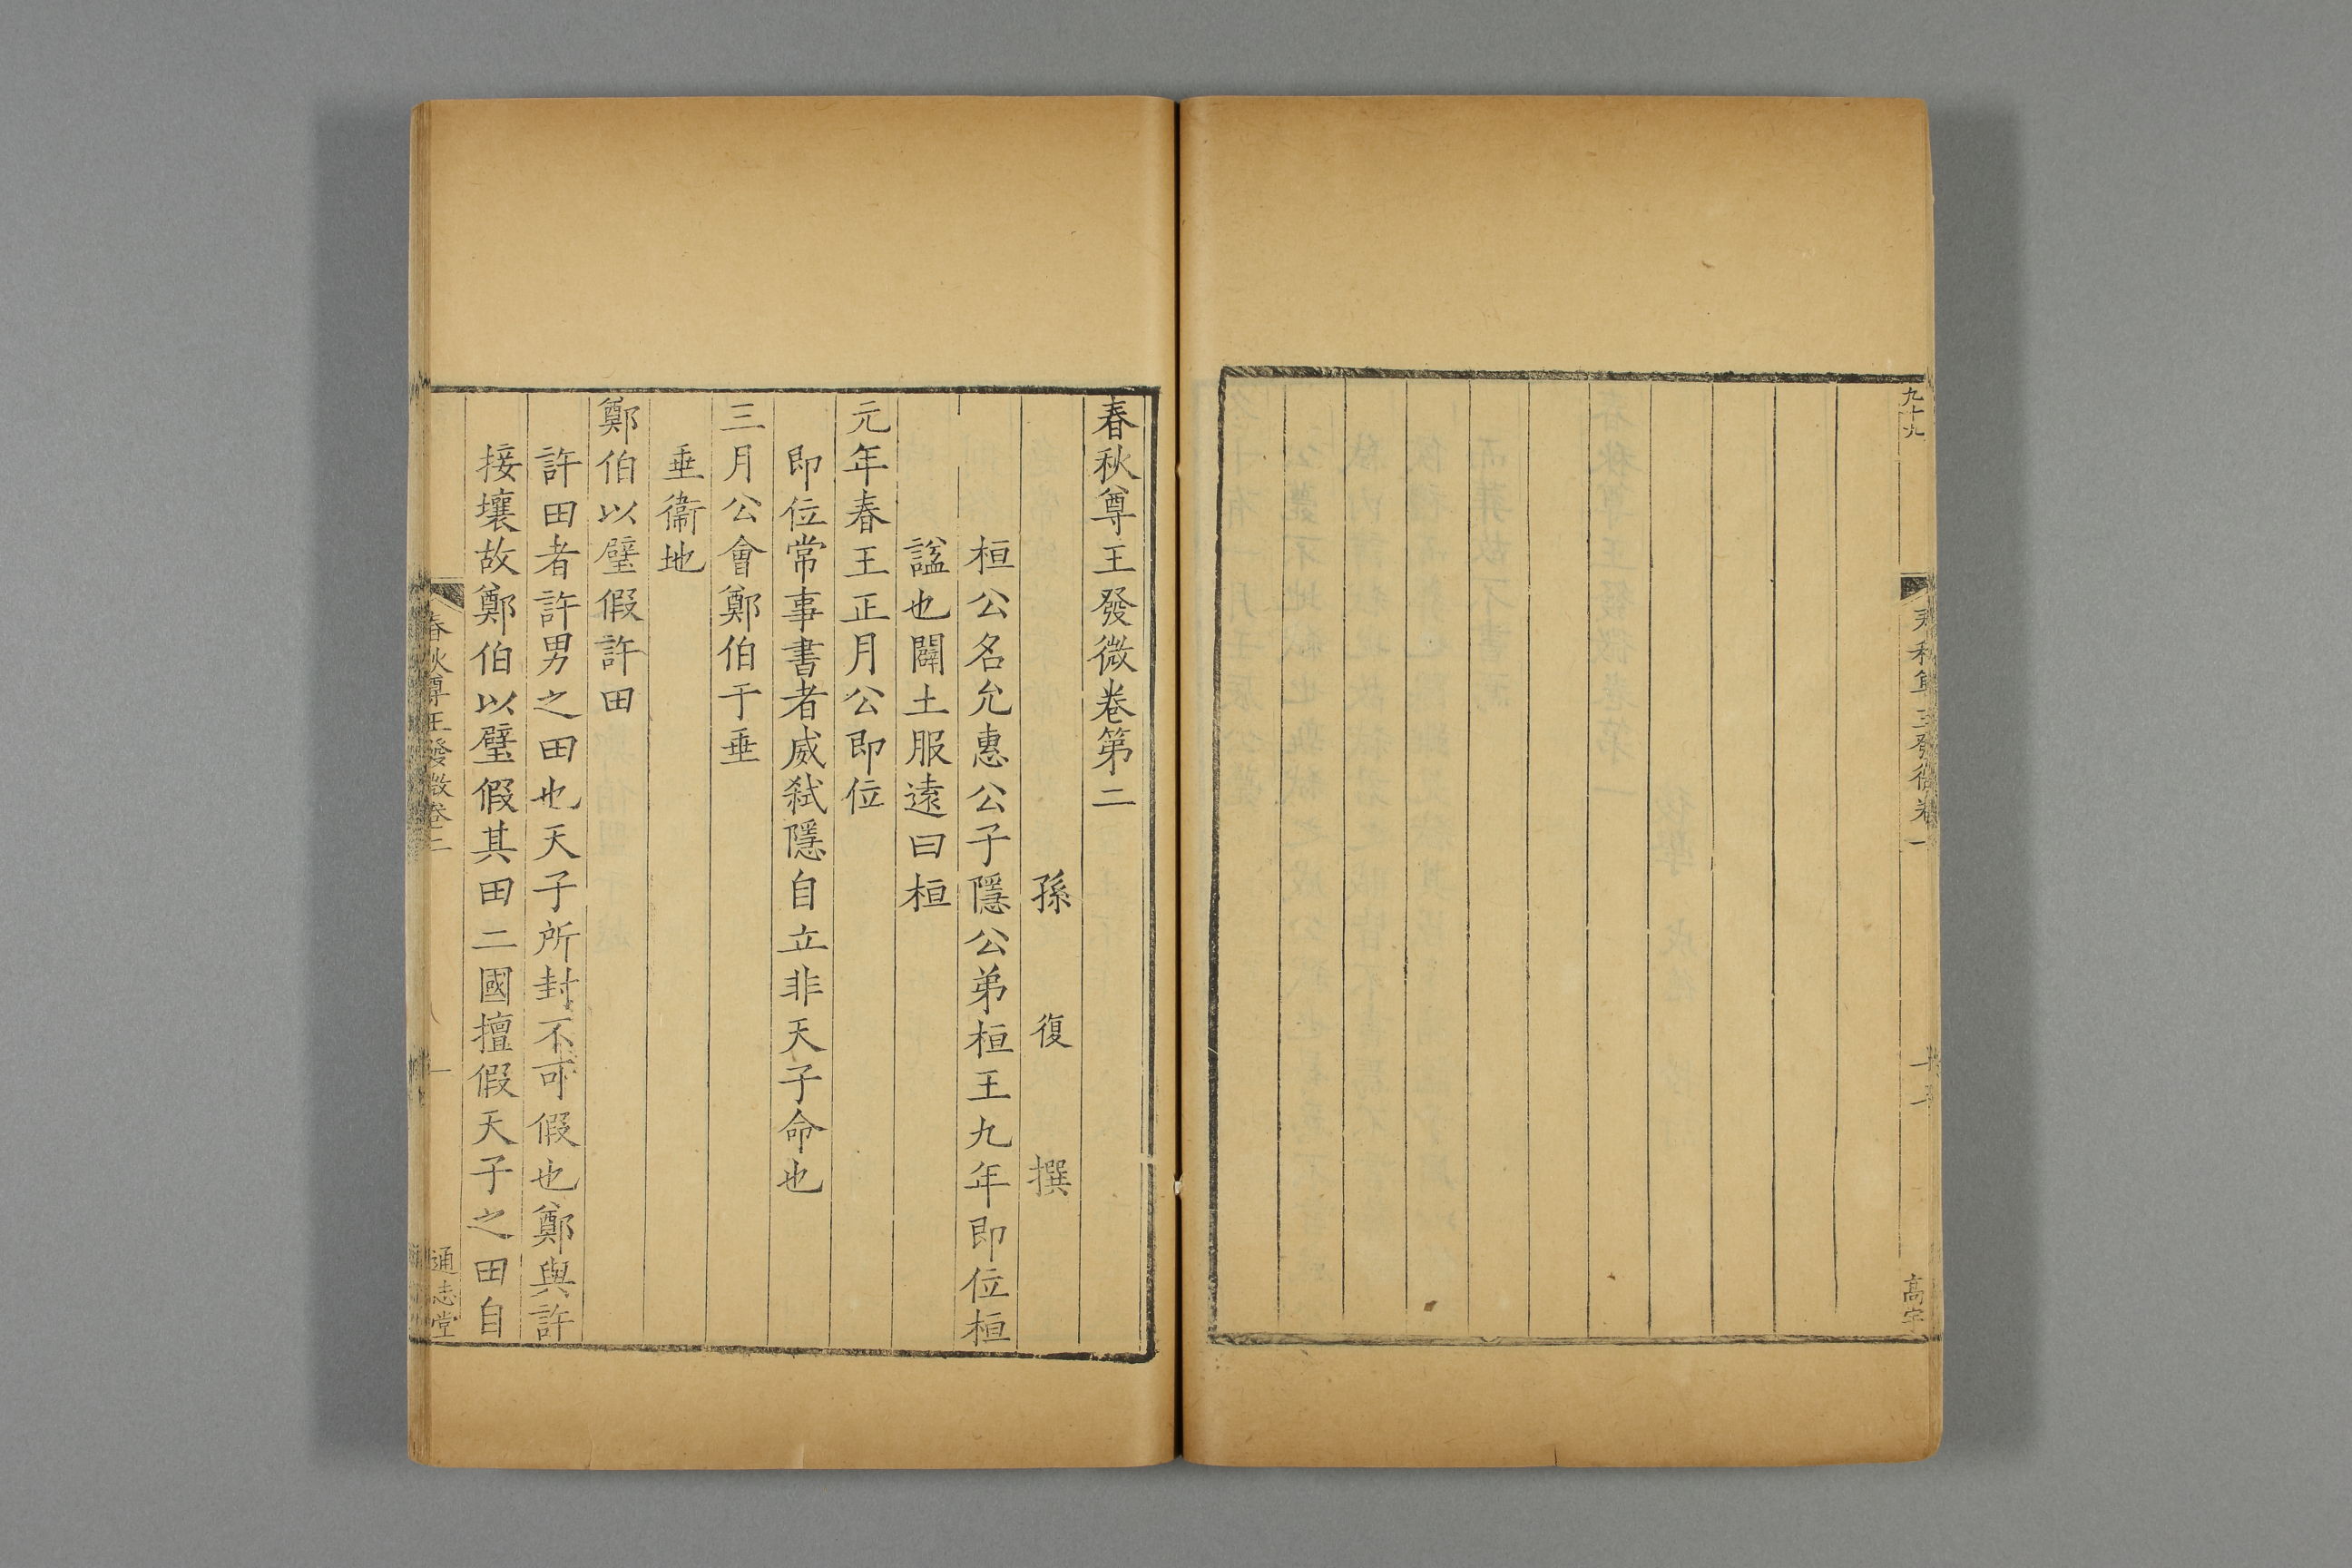 九十九
春秋尊王發微卷一
高宇
春秋尊王發微卷第二
孫復撰
桓公名允惠公子隱公弟桓王九年即位桓
諡也闢土服遠曰桓
元年春王正月公即位
即位常事書者威弒隱自立非天子命也
三月公會鄭伯于垂
垂衞地
鄭伯以璧假許田
許田者許男之田也天子所封不可假也鄭與許
接壤故鄭伯以璧假其田二國擅假天子之田自
春秋尊王發微卷二
一
通志堂